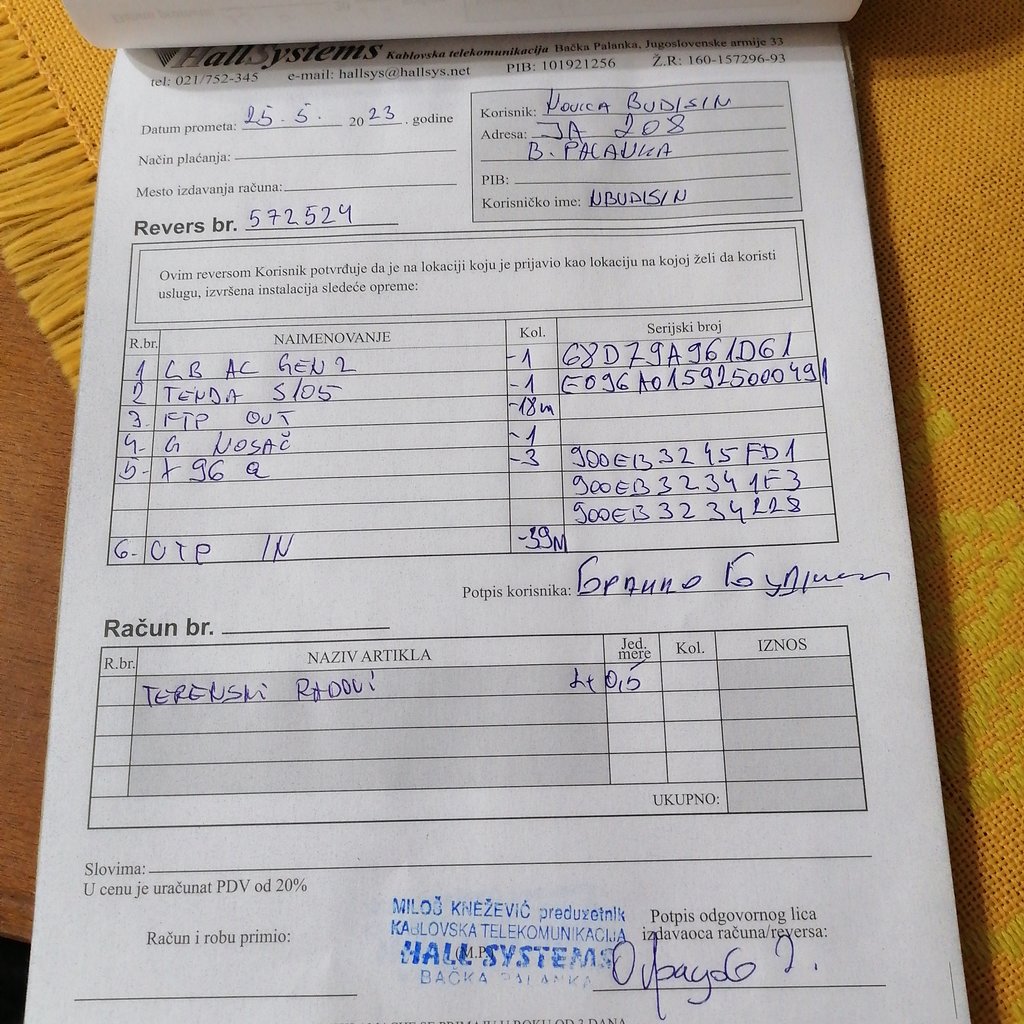 HallSystems Kablovska telekomunikacija Bačka Palanka, Jugoslovenske armije 33
tel: 021/752-345 e-mail: hallsys@hallsys.net PIB: 101921256 Ž.R: 160-157296-93
Datum prometa: 25.5. 2023. godine
Način plaćanja:
Mesto izdavanja računa:
Revers br. 572524
Korisnik: NOVICA BUDISIN
Adresa: JA 208
B. PALANKA
PIB:
Korisničko ime: NBUDISIN
Ovim reversom Korisnik potvrđuje da je na lokaciji koju je prijavio kao lokaciju na kojoj želi da koristi
uslugu, izvršena instalacija sledeće opreme:
R.br. NAIMENOVANJE Kol. Serijski broj
1 LB AC GEN2 -1 68D79A961D61
2 TENDA S105 -1 E096A015925000491
3. FTP OUT -18m
4. G NOSAČ -1
5- X96 Q -3 900EB3245FD1
900EB32341F3
900EB3234228
6. UTP IN -39M
Potpis korisnika:
Račun br.
R.br. NAZIV ARTIKLA Jed. mere Kol. IZNOS
TERENSKI RADOVI 2+ 0,5
UKUPNO:
Slovima:
U cenu je uračunat PDV od 20%
Račun i robu primio:
MILOŠ KNEŽEVIĆ preduzetnik
KABLOVSKA TELEKOMUNIKACIJA
(M.P.)
HALL SYSTEMS
BAČKA PALANKA
Potpis odgovornog lica
izdavaoca računa/reversa:
SE PRIMAJU U ROKU OD 3 DANA